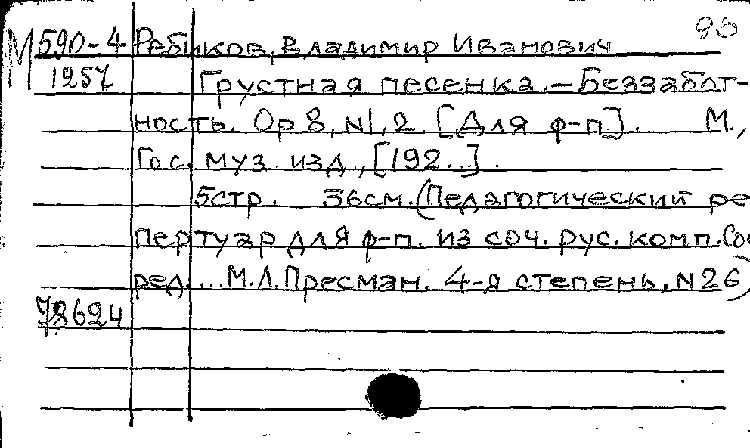 95
М 590-4 Ребиков, Владимир Иванович
1257 Грустная песенка. – Беззабот-
ность. Ор 8, N1,2. [Для ф-п]. М.,
Гос. муз. изд., [192..].
5стр. 36см. (Педагогический ре
пертуар для ф-п. из соч. рус. комп. Со
ред... М.Л.Пресман. 4-я степень, N26)
78624